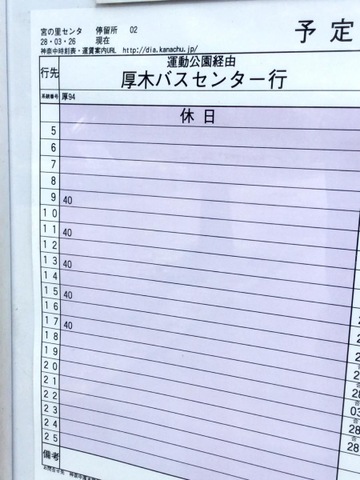 宮の里センタ 停留所 02
28・03・26 現在
神奈中時刻表・運賃案内URL http://dia.kanachu.jp/
予定
行先 運動公園経由
厚木バスセンター行
系統番号 厚94
休日
5
6
7
8
9 40
10
11 40
12
13 40
14
15 40
16
17 40
18
19
20
21
22
23
24
25
備考